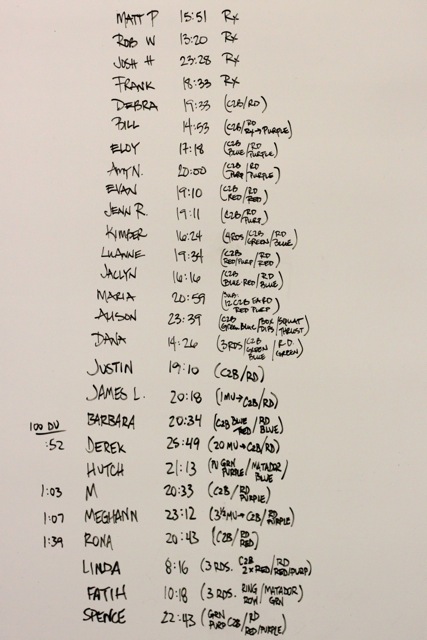 MATT P 15:51 Rx
ROB W 13:20 Rx
JOSH H 23:28 Rx
FRANK 18:33 Rx
DEBRA 19:33 (C2B/RD)
BILL 14:53 (C2B/RD RX→PURPLE)
ELOY 17:18 (C2B BLUE/RD PURPLE)
AMY N. 20:00 (C2B PURP/RD PURPLE)
EVAN 19:10 (C2B RED/RD RED)
JENN R. 19:11 (C2B/RD PURP)
KIMBER 16:24 (4RDS/C2B GREEN/RD BLUE)
LUANNE 19:34 (C2B RED/PURP/RD RED)
JACLYN 16:16 (C2B BLUE RED/RD BLUE)
MARIA 20:59 (SUB: 12 C2B EA RD RED PURP)
ALISON 23:39 (C2B GREEN BLUE/BOX DIPS/SQUAT THRUST)
DANA 14:26 (3 RDS/C2B GREEN BLUE/R.D. GREEN)
JUSTIN 19:10 (C2B/RD)
JAMES L. 20:18 (1 MU→C2B/RD)
100 DU BARBARA 20:34 (C2B BLUE RED/RD BLUE)
:52 DEREK 25:49 (20 MU→C2B/RD)
HUTCH 21:13 (PU GRN PURPLE/MATADOR BLUE)
1:03 M 20:33 (C2B/RD PURPLE)
1:07 MEGHANN 23:12 (3½ MU→C2B/RD PURPLE)
1:39 RONA 20:43 (C2B/RD RED)
LINDA 8:16 (3 RDS. C2B 2xRED/RD RED/PURP)
FATIH 10:18 (3 RDS. RING ROW/MATADOR GRN)
SPENCE 22:43 (GRN PURP C2B/RD RED/PURPLE)